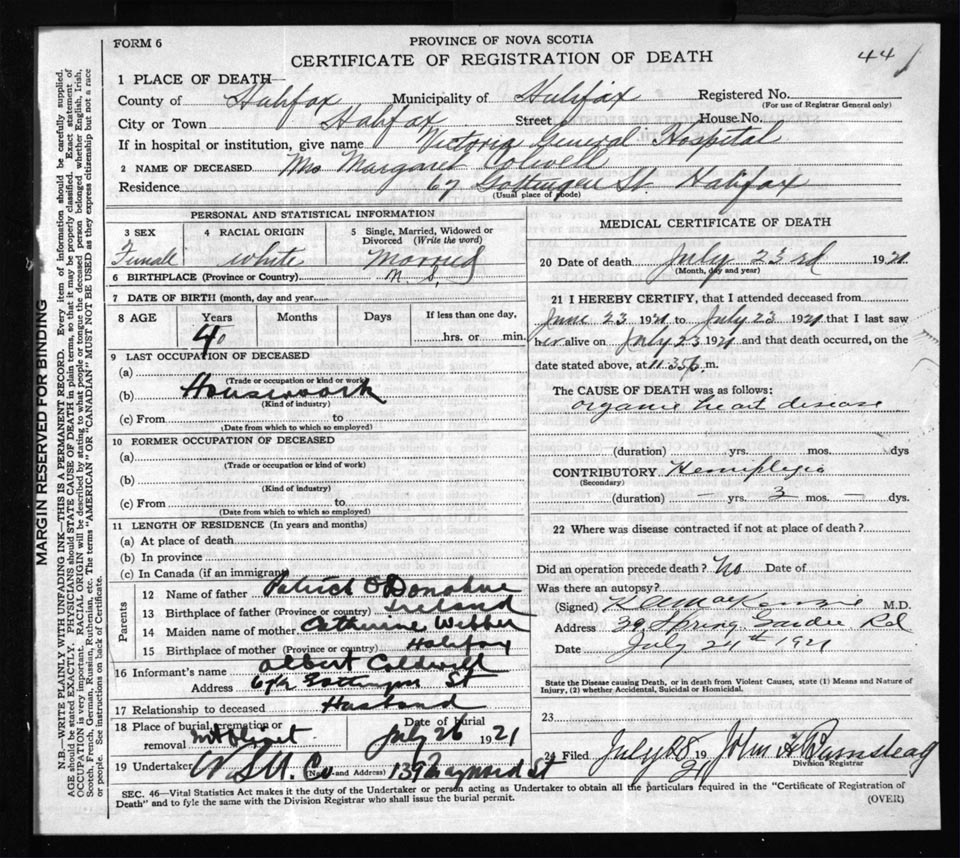 FORM 6
PROVINCE OF NOVA SCOTIA
CERTIFICATE OF REGISTRATION OF DEATH
44
1 PLACE OF DEATH
County of Halifax Municipality of Halifax Registered No.
(For use of Registrar General only)
City or Town Halifax Street House No.
If in hospital or institution, give name Victoria General Hospital
2 NAME OF DECEASED Mrs Margaret Colwell
Residence 67 Gottingen St. Halifax
(Usual place of abode)
PERSONAL AND STATISTICAL INFORMATION
3 SEX 4 RACIAL ORIGIN 5 Single, Married, Widowed or Divorced (Write the word)
Female white Married
6 BIRTHPLACE (Province or Country) N. S.
7 DATE OF BIRTH (month, day and year)
8 AGE Years Months Days If less than one day,
40 hrs. or min.
9 LAST OCCUPATION OF DECEASED
(a)
(Trade or occupation or kind or work)
(b) Housework
(Kind of industry)
(c) From to
(Date from which to which so employed)
10 FORMER OCCUPATION OF DECEASED
(a)
(Trade or occupation or kind of work)
(b)
(Kind of industry)
(c) From to
(Date from which to which so employed)
11 LENGTH OF RESIDENCE (In years and months)
(a) At place of death
(b) In province
(c) In Canada (if an immigrant)
Parents
12 Name of father Patrick O'Donahue
13 Birthplace of father (Province or country) Ireland
14 Maiden name of mother Catherine Webber
15 Birthplace of mother (Province or country) Halifax
16 Informant's name Albert Coldwell
Address 67½ Gottingen St
17 Relationship to deceased Husband
18 Place of burial, cremation or removal Mt Olivet Date of burial July 26 1921
19 Undertaker (Name and Address) 139 Maynard St
MEDICAL CERTIFICATE OF DEATH
20 Date of death July 23rd 1921
(Month, day and year)
21 I HEREBY CERTIFY, that I attended deceased from
June 23 1921 to July 23 1921 that I last saw
her alive on July 23 1921 and that death occurred, on the
date stated above, at 11.35 p. m.
The CAUSE OF DEATH was as follows:
organic heart disease
(duration) yrs. mos. dys
CONTRIBUTORY Hemiplegia
(Secondary)
(duration) — yrs. 3 mos. — dys.
22 Where was disease contracted if not at place of death?
Did an operation precede death? No Date of
Was there an autopsy?
(Signed) MacKenzie M.D.
Address 39 Spring Garden Rd
Date July 24th 1921
State the Disease causing Death, or in death from Violent Causes, state (1) Means and Nature of
Injury, (2) whether Accidental, Suicidal or Homicidal.
23
24 Filed July 28 1921 John A Barnstead
Division Registrar
SEC. 46—Vital Statistics Act makes it the duty of the Undertaker or person acting as Undertaker to obtain all the particulars required in the "Certificate of Registration of
Death" and to fyle the same with the Division Registrar who shall issue the burial permit.
(OVER)
MARGIN RESERVED FOR BINDING
N.B.—WRITE PLAINLY WITH UNFADING INK—THIS IS A PERMANENT RECORD. Every item of information should be carefully supplied.
AGE should be stated EXACTLY. PHYSICIANS should STATE CAUSE OF DEATH in plain terms, so that it may be properly classified. Exact statement of
OCCUPATION is very important. RACIAL ORIGIN will be described by stating to what people or tongue the deceased person belonged whether English, Irish,
Scotch, French, German, Russian, Ruthenian, etc. The terms "AMERICAN" or "CANADIAN" MUST NOT BE USED as they express citizenship but not a race
or people. See instructions on back of Certificate.